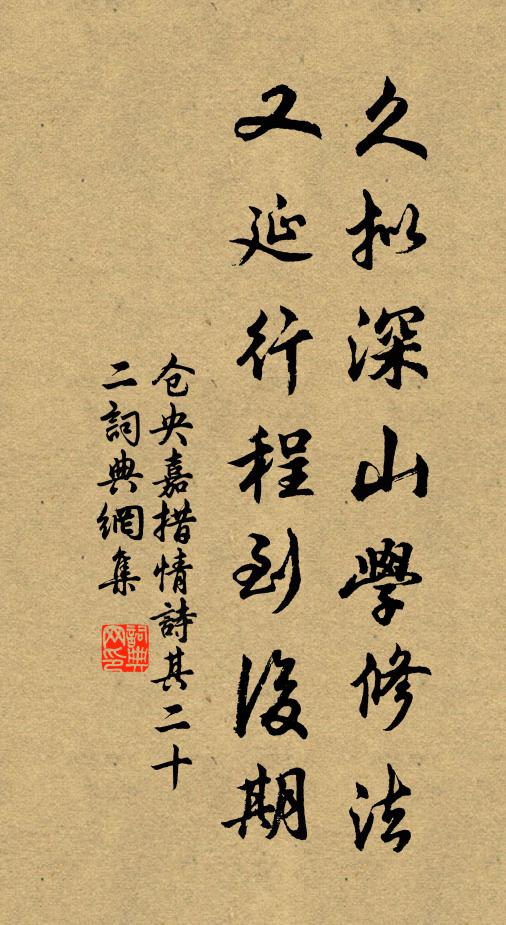 久拟深山學修法
又延行程到後期
仓央嘉措情詩其二十
二詞典網集
詞典
网印